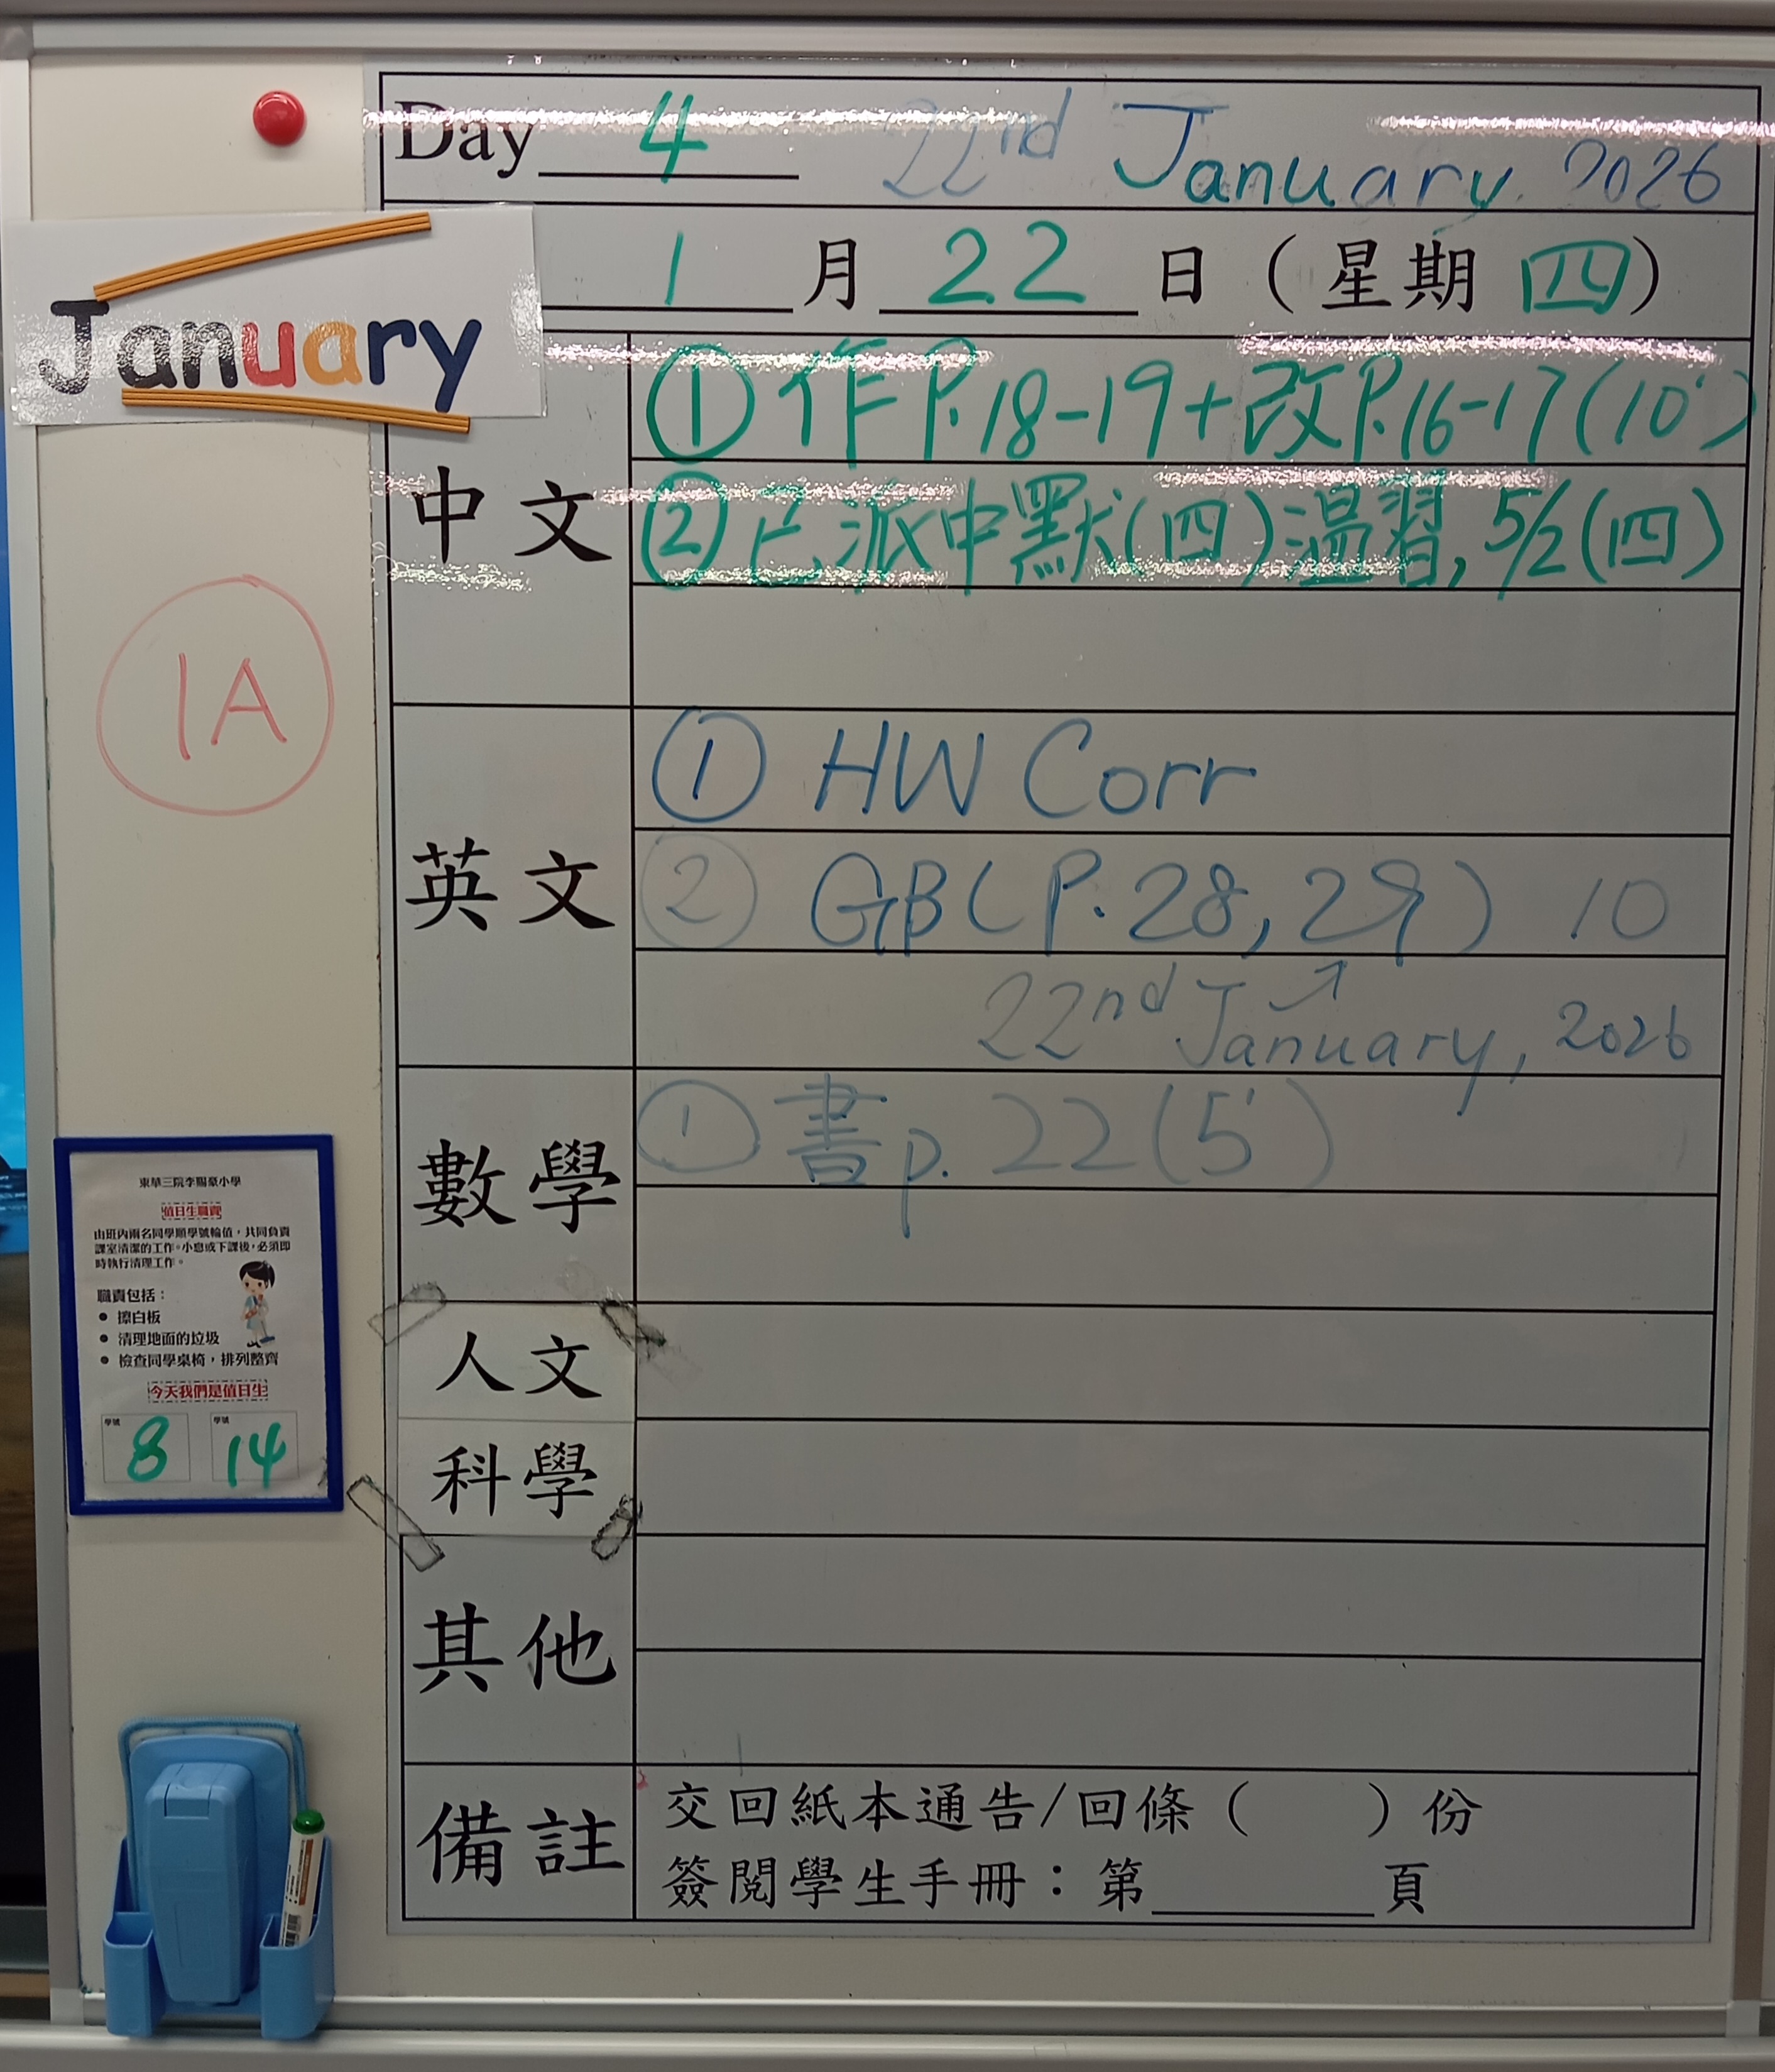 Day 4 22nd January, 2026
January
1 月 22 日 (星期 四)
中文
① 作 P.18-19+改P.16-17(10')
② 已派中默(四)溫習, 5/2(四)
1A
英文
① HW Corr
② GB( P. 28, 29 ) 10
22nd January, 2026
數學
① 書 p. 22 (5')
東華三院李賜豪小學
值日生職責
由班內兩名同學順學號輪值，共同負責
課室清潔的工作。小息或下課後，必須即
時執行清理工作。
職責包括：
• 擦白板
• 清理地面的垃圾
• 檢查同學桌椅，排列整齊
今天我們是值日生
學號 8 學號 14
人文
科學
其他
備註
交回紙本通告/回條（ ）份
簽閱學生手冊：第 頁